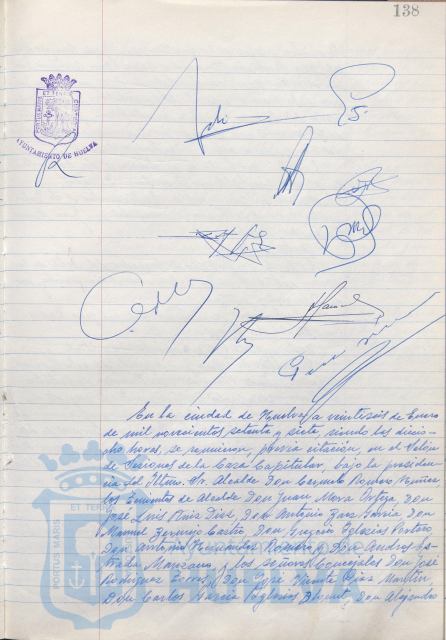 138
PORTUS MARIS
ET TERRAE
AYUNTAMIENTO DE HUELVA
En la ciudad de Huelva a veintiseis de Enero
de mil novecientos setenta y siete siendo las dieci-
ocho horas, se reunieron, previa citación, en el Salón
de Sesiones de la Casa Capitular, bajo la presiden-
cia del Iltmo. Sr. Alcalde Don Carmelo Romero Núñez
los Tenientes de Alcalde Don Juan Mora Ortega, Don
José Luis Ruiz Díaz, Don Antonio García Don
Manuel Bermejo Castro, Don Gregorio Iglesias
Don Antonio Fernández Romero y Don Andrés Es-
trada Manzano, y los señores Concejales Don José
Rodríguez Torres, Don José Vicente Díaz Martín
Don Carlos García Iglesias Don Alejandro
PORTUS MARIS
ET TERR